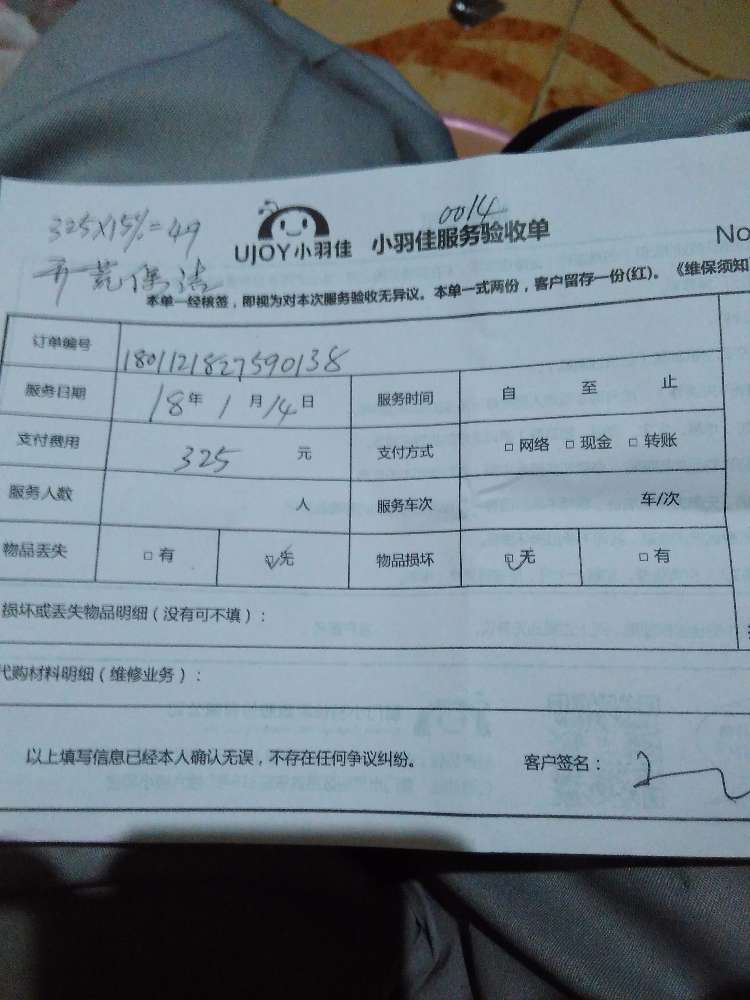 0014
325×15%=49
UJOY小羽佳 小羽佳服务验收单 No
开荒保洁
本单一经核签，即视为对本次服务验收无异议。本单一式两份，客户留存一份(红)。《维保须知
订单编号 180112182759013８
服务日期 18年 1月 14日 服务时间 自 至 止
支付费用 325 元 支付方式 □ 网络 □ 现金 □ 转账
服务人数 人 服务车次 车/次
物品丢失 □ 有 □ 无 物品损坏 □ 无 □ 有
损坏或丢失物品明细（没有可不填）：
代购材料明细（维修业务）：
以上填写信息已经本人确认无误，不存在任何争议纠纷。 客户签名：